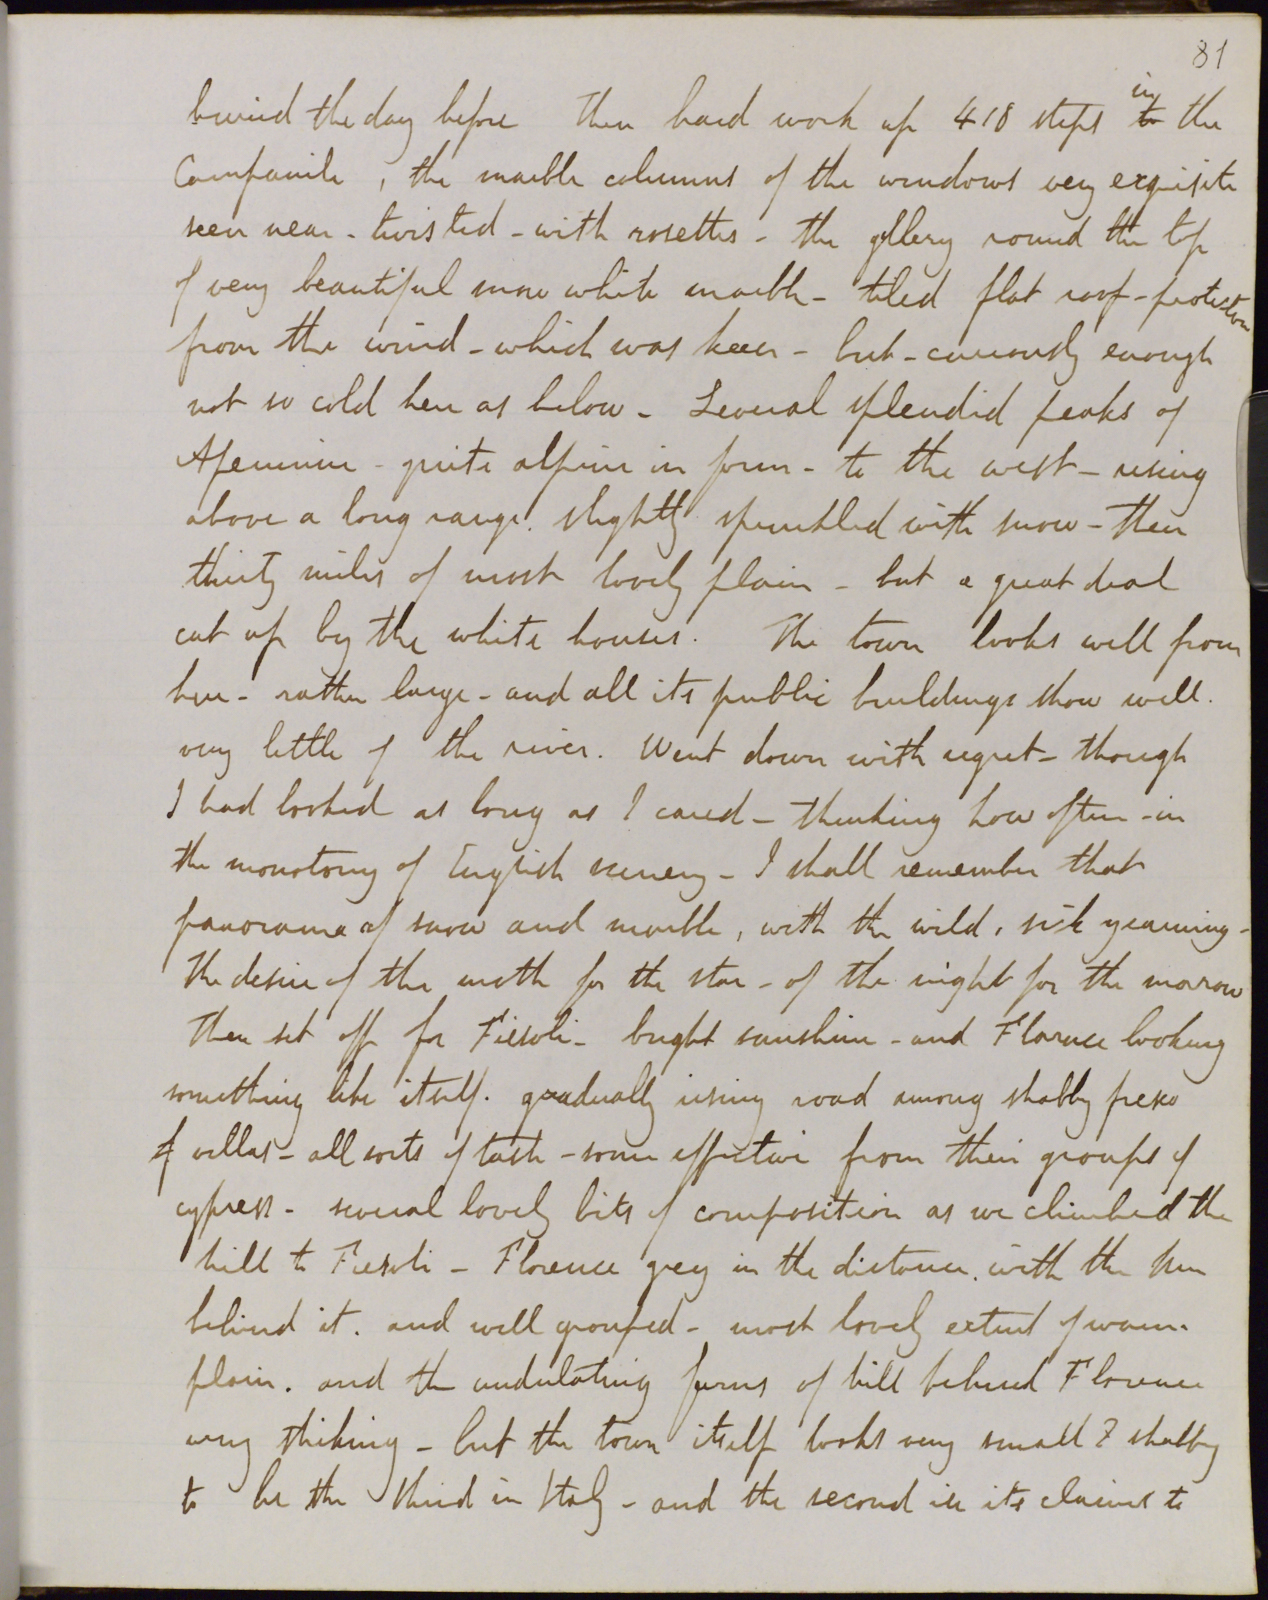 81
buried the day before Then hard work up 418 steps in to the
Campanile, the marble columns of the windows very exquisite
seen near - twisted - with rosettes - the gallery round the top
of very beautiful snow white marble - tiled flat roof - protection
from the wind - which was keen - but - curiously enough
not so cold here as below - Several splendid peaks of
Apennine - quite alpine in form - to the west - rising
above a long range. slightly sprinkled with snow - then
thirty miles of most lovely plain - but a great deal
cut up by the white houses. The town looks well from
here - rather large - and all its public buildings show well.
very little of the river. Went down with regret - though
I had looked as long as I cared - thinking how often - in
the monotony of English scenery - I shall remember that
panorama of snow and marble, with the wild, sick yearning -
the desire of the moth for the star - of the night for the morrow
Then set off for Fiesoli - bright sunshine - and Florence looking
something like itself. gradually rising road among shabby fresco
of villas - all sorts of taste - some effective from their groups of
cypress - several lovely bits of composition as we climbed the
hill to Fiesoli - Florence grey in the distance. with the sun
behind it. and well grouped - most lovely extent of warm
plain. and the undulating forms of hill behind Florence
very striking - but the town itself looks very small & shabby
to be the third in Italy - and the second in its claims to